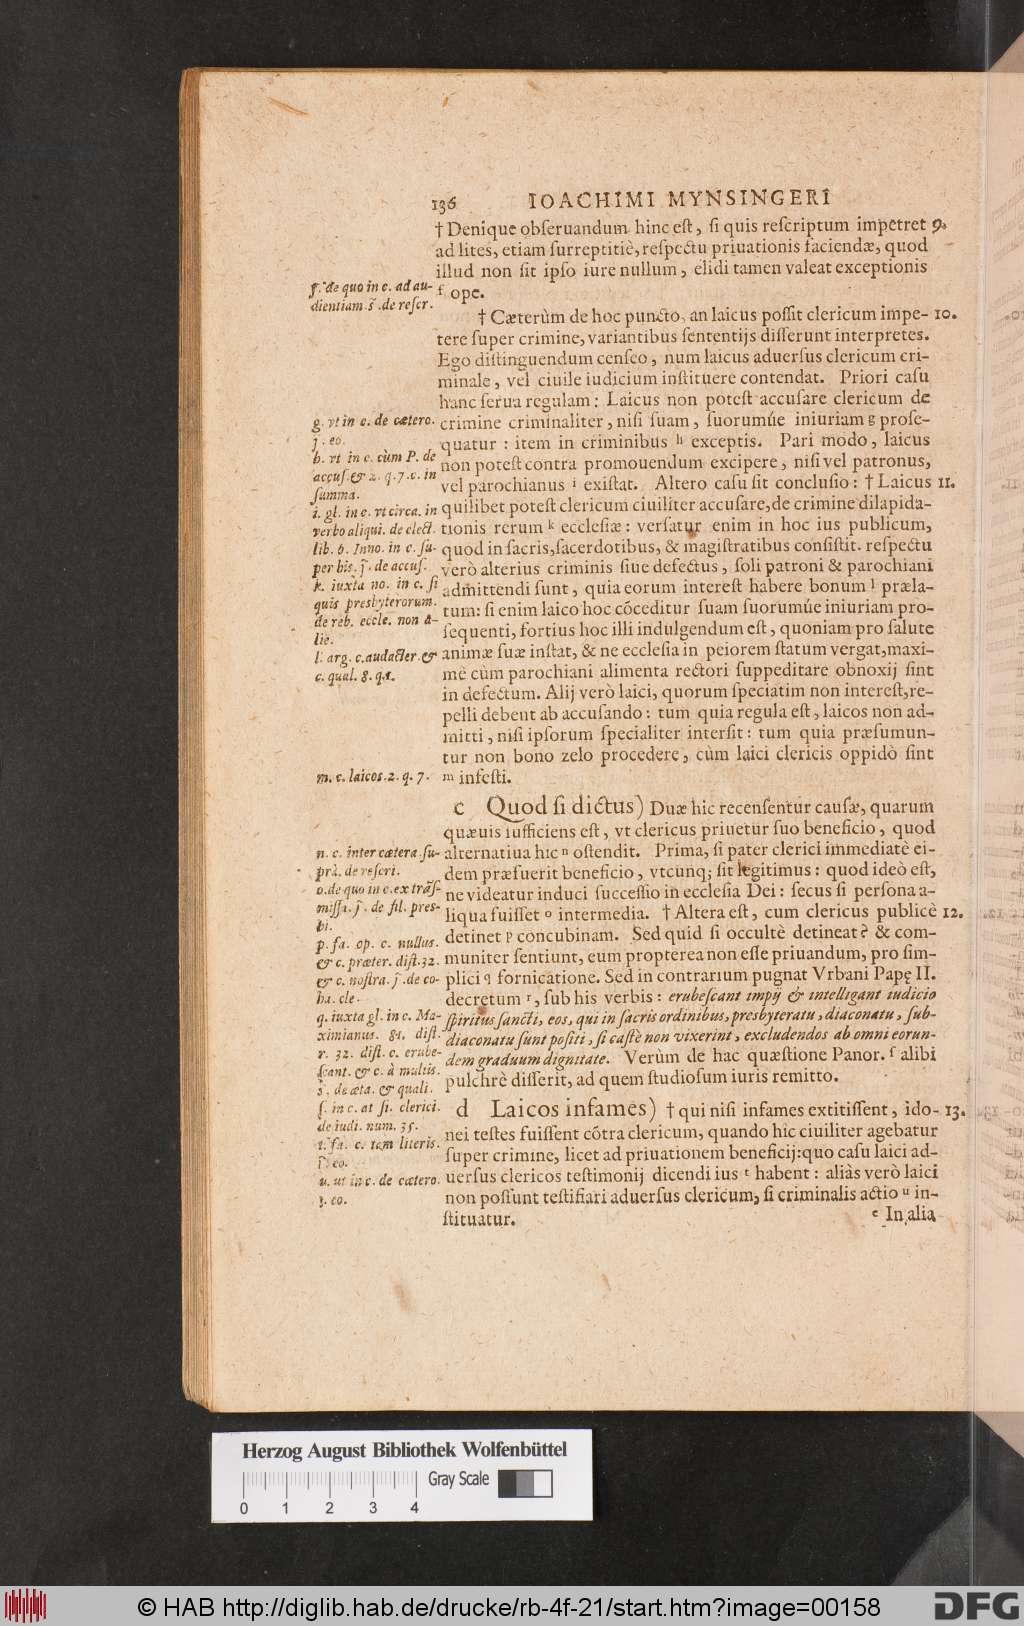 136 IOACHIMI MYNSINGERI
† Denique obſeruandum hinc eſt, ſi quis reſcriptum impetret 9.
ad lites, etiam ſurreptitiè, reſpectu priuationis faciendæ, quod
illud non ſit ipſo iure nullum, elidi tamen valeat exceptionis
f ope.
† Cæterùm de hoc puncto, an laicus poſſit clericum impe- 10.
tere ſuper crimine, variantibus ſententijs diſſerunt interpretes.
Ego diſtinguendum cenſeo, num laicus aduerſus clericum cri-
minale, vel ciuile iudicium inſtituere contendat. Priori caſu
hanc ſerua regulam: Laicus non poteſt accuſare clericum de
crimine criminaliter, niſi ſuam, ſuorumúe iniuriam g proſe-
quatur: item in criminibus h exceptis. Pari modo, laicus
non poteſt contra promouendum excipere, niſi vel patronus,
vel parochianus i exiſtat. Altero caſu ſit concluſio: † Laicus 11.
quilibet poteſt clericum ciuiliter accuſare, de crimine dilapida-
tionis rerum k eccleſiæ: verſatur enim in hoc ius publicum,
quod in ſacris, ſacerdotibus, & magiſtratibus conſiſtit. reſpectu
verò alterius criminis ſiue defectus, ſoli patroni & parochiani
admittendi ſunt, quia eorum intereſt habere bonum l præla-
tum: ſi enim laico hoc cõceditur ſuam ſuorumúe iniuriam pro-
ſequenti, fortius hoc illi indulgendum eſt, quoniam pro ſalute
animæ ſuæ inſtat, & ne eccleſia in peiorem ſtatum vergat, maxi-
mè cùm parochiani alimenta rectori ſuppeditare obnoxij ſint
in defectum. Alij verò laici, quorum ſpeciatim non intereſt, re-
pelli debent ab accuſando: tum quia regula eſt, laicos non ad-
mitti, niſi ipſorum ſpecialiter interſit: tum quia præſumun-
tur non bono zelo procedere, cùm laici clericis oppidò ſint
m infeſti.
c Quod ſi dictus) Duæ hic recenſentur cauſæ, quarum
quæuis ſufficiens eſt, vt clericus priuetur ſuo beneficio, quod
alternatiua hic n oſtendit. Prima, ſi pater clerici immediatè ei-
dem præfuerit beneficio, vtcunq; ſit legitimus: quod ideò eſt,
ne videatur induci ſucceſſio in eccleſia Dei: ſecus ſi perſona a-
liqua fuiſſet o intermedia. † Altera eſt, cum clericus publicè 12.
detinet p concubinam. Sed quid ſi occultè detineat? & com-
muniter ſentiunt, eum propterea non eſſe priuandum, pro ſim-
plici q fornicatione. Sed in contrarium pugnat Vrbani Papę II.
decretum r, ſub his verbis: erubeſcant impij & intelligant iudicio
ſpiritus ſancti, eos, qui in ſacris ordinibus, presbyteratu, diaconatu, ſub-
diaconatu ſunt poſiti, ſi caſtè non vixerint, excludendos ab omni eorun-
dem graduum dignitate. Verùm de hac quæſtione Panor. ſ alibi
pulchrè diſſerit, ad quem ſtudioſum iuris remitto.
d Laicos infames) † qui niſi infames extitiſſent, ido- 13.
nei teſtes fuiſſent cõtra clericum, quando hìc ciuiliter agebatur
ſuper crimine, licet ad priuationem beneficij: quo caſu laici ad-
uerſus clericos teſtimonij dicendi ius t habent: aliàs verò laici
non poſſunt teſtifiari aduerſus clericum, ſi criminalis actio u in-
ſtituatur.
e In alia
f. de quo in c. ad au-
dientiam. s̃. de reſcr.
g. vt in c. de cætero.
j. eo.
h. vt in c. cùm P. de
accuſ. & 2. q. 7. c. in
ſumma.
i. gl. in c. vt circa. in
verbo aliqui. de elect.
lib. 6. Inno. in c. ſu-
per his. j̃. de accuſ.
k. iuxta no. in c. ſi
quis presbyterorum.
de reb. eccle. non a-
lie.
l. arg. c. audacter. &
c. qual. 8. q. 1.
m. c. laicos. 2. q. 7.
n. c. inter cætera ſu-
prà. de reſcri.
o. de quo in c. ex trãſ-
miſſa. j̃. de fil. pres-
bi.
p. fa. op. c. nullus.
& c. præter. diſt. 32.
& c. noſtra. j̃. de co-
ha. cle.
q. iuxta gl. in c. Ma-
ximianus. 81. diſt.
r. 32. diſt. c. erube-
ſcant. & c. à multis.
s̃. de æta. & quali.
ſ. in c. at ſi. clerici.
de iudi. num. 35.
t. fa. c. tam literis.
j̃. eo.
u. ut in c. de cætero.
j. eo.
Herzog August Bibliothek Wolfenbüttel
Gray Scale
0 1 2 3 4
© HAB http://diglib.hab.de/drucke/rb-4f-21/start.htm?image=00158
DFG